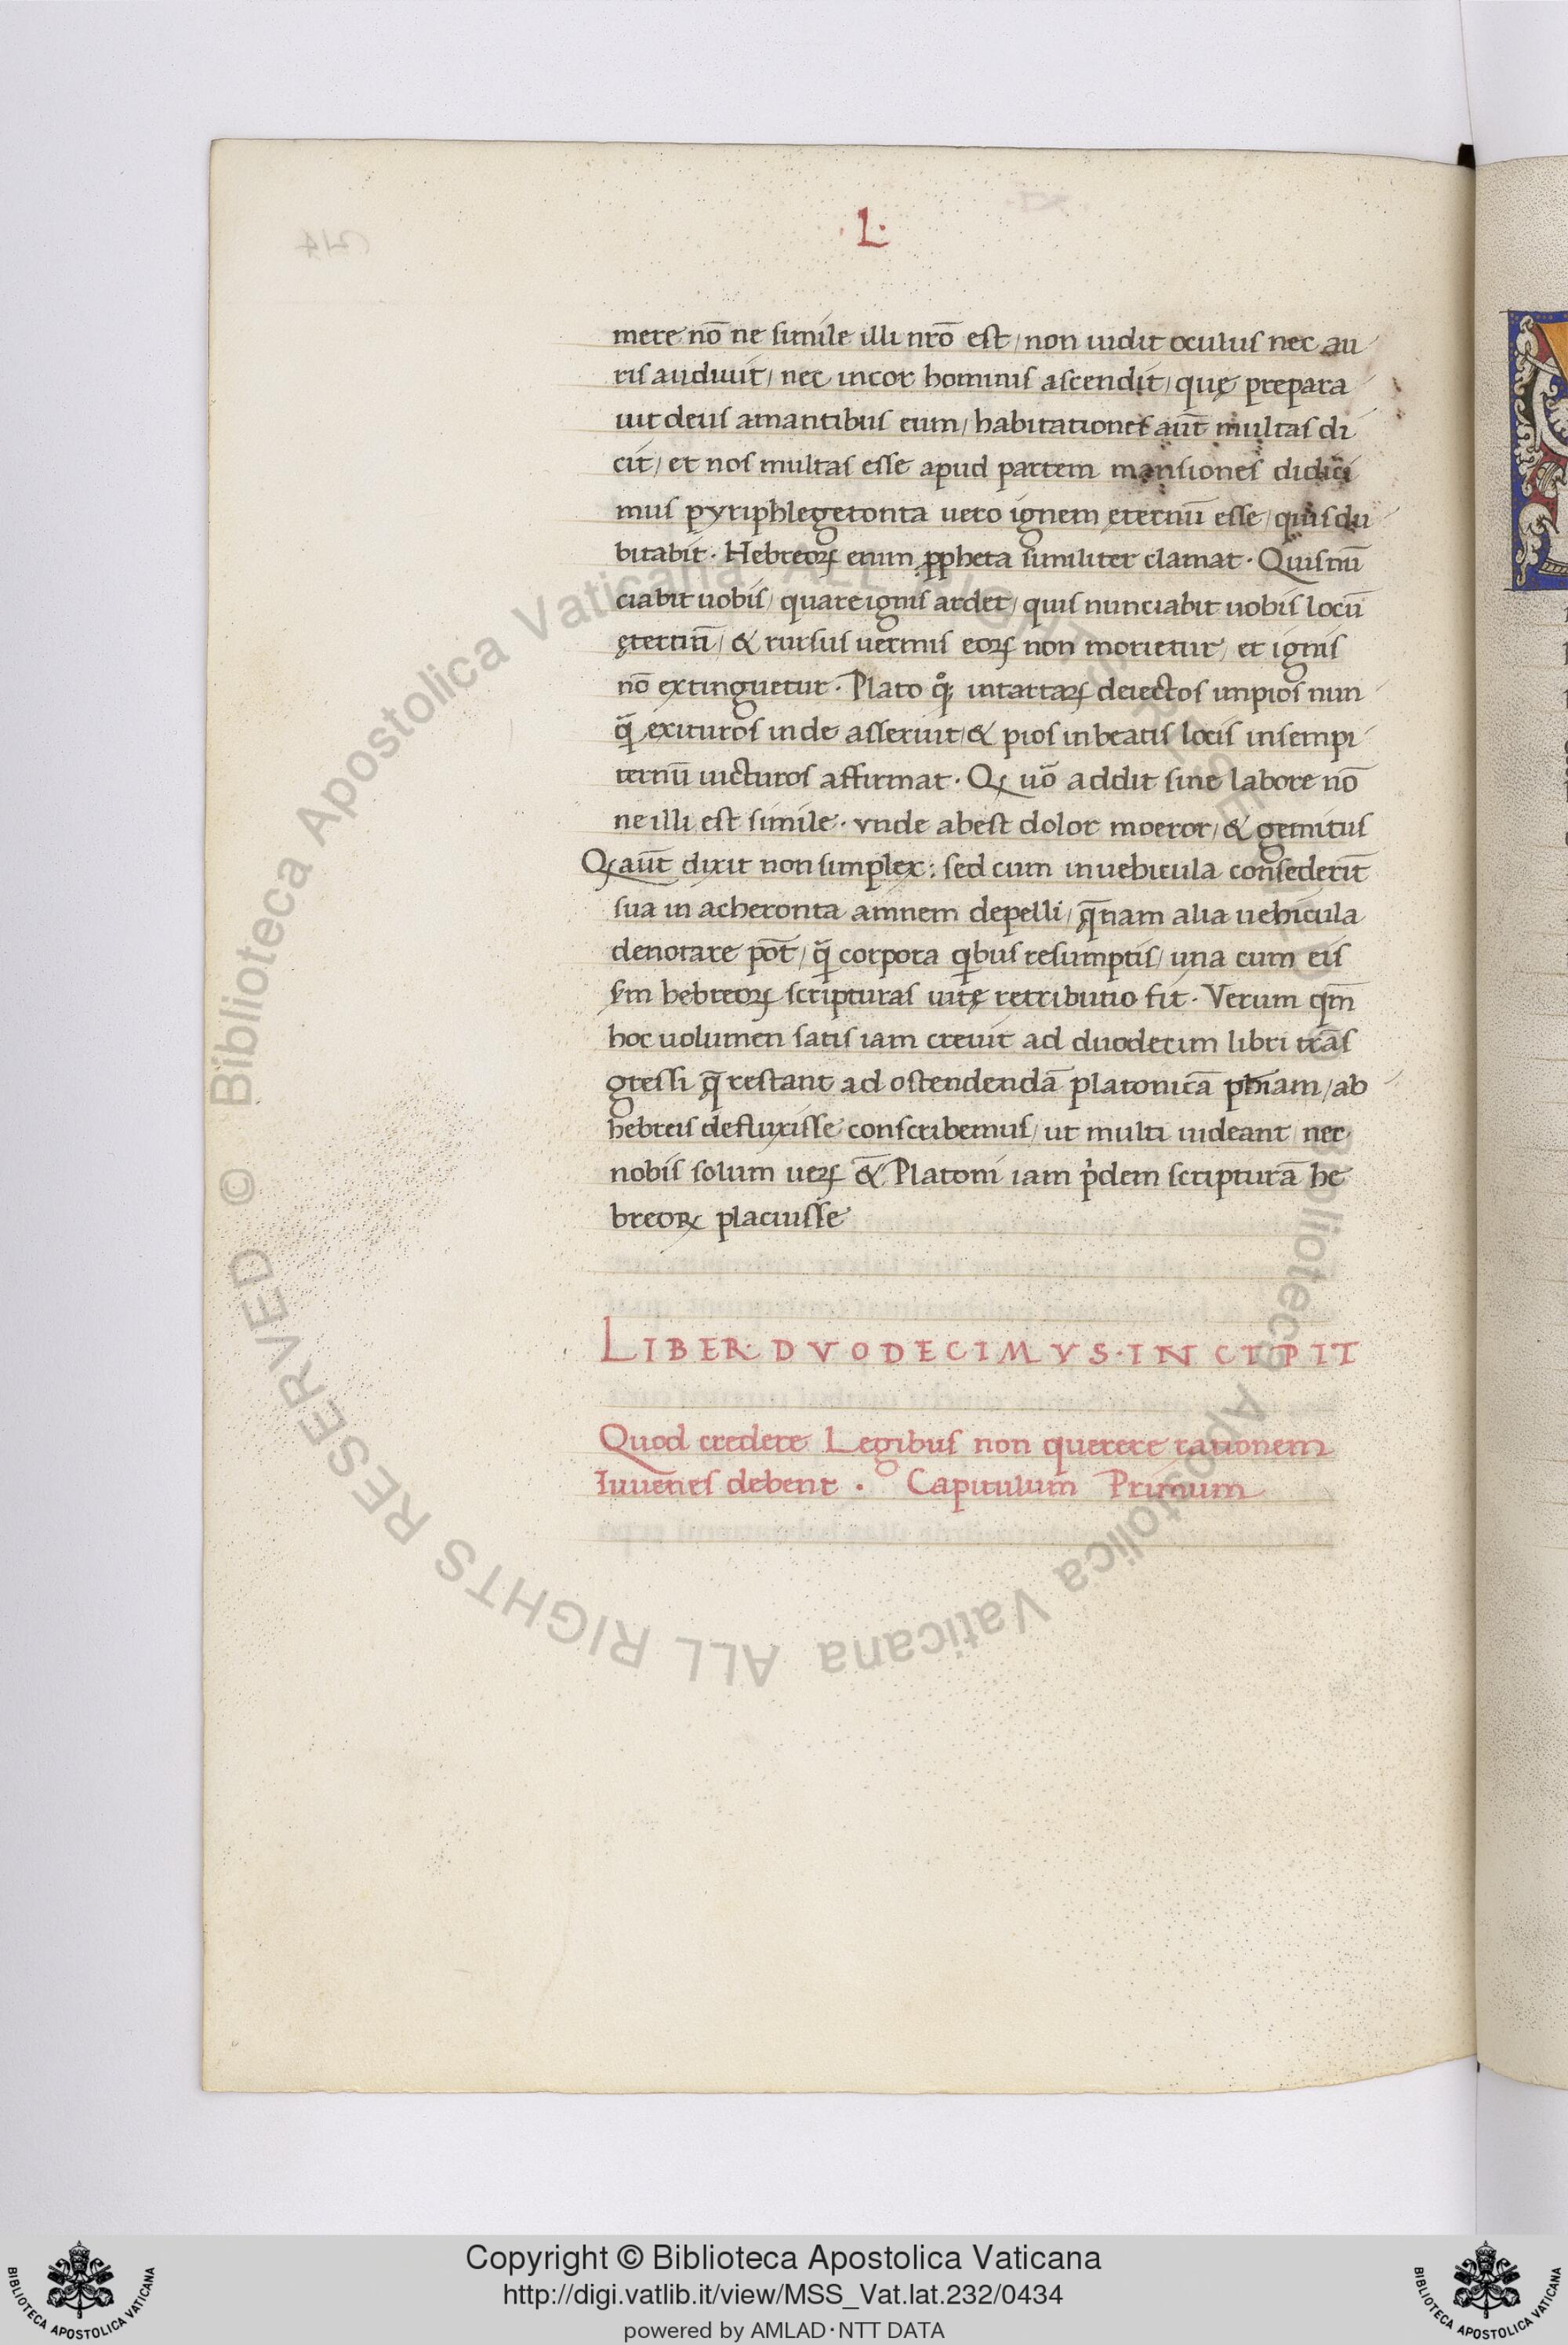 ·L·
mere nō ne simile illi nrō est / non uidit oculus nec au
ris audiuit / nec in cor hominis ascendit / quę prepara
uit deus amantibus eum / habitationes aūt multas di
cit / et nos multas esse apud partem mansiones didici
mus pyriphlegetonta uero ignem ęternū esse / quis du
bitabit · Hebreoꝝ enim ꝓpheta similiter clamat · Quis nū
ciabit uobis / quare ignis ardet / quis nunciabit uobis locū
ęternū / & rursus uermis eoꝝ non morietur / et ignis
nō extinguetur · Plato qͦꝫ in tartaꝝ deiectos impios nun
ꝗ̃ exituros inde asseruit / & pios in beatis locis in sempi
ternū uicturos affirmat · Qꝫ uō addit sine labore nō
ne illi est simile · vnde abest dolor moeror / & gemitus
Qꝫ aūt dixit non simplex : sed cum in uehicula consederīt
sua in acheronta amnem depelli / q̄nam alia uehicula
denotare pōt / ꝗ̃ corpora ꝗbus resumptis / una cum eis
s̄m hebreoꝝ scripturas uitę retributio fit · Verum qm̄
hoc uolumen satis iam creuit ad duodecim libri trās
gressi q̄ restant ad ostendendā platonicā ph̄iam / ab
hebreis defluxisse conscribemus / ut multi uideant nec
nobis solum ueꝝ &̄ Platoni iam pͥdem scripturā he
breoꝝ placuisse
LIBER · DVODECIMVS · INCIPIT
Quod credere Legibus non querere rationem
Iuuenes debent · Capitulum Primum
© Biblioteca Apostolica Vaticana ALL RIGHTS RESERVED
© Biblioteca Apostolica Vaticana ALL RIGHTS RESERVED
Copyright © Biblioteca Apostolica Vaticana
http://digi.vatlib.it/view/MSS_Vat.lat.232/0434
powered by AMLAD·NTT DATA
BIBLIOTECA APOSTOLICA VATICANA
BIBLIOTECA APOSTOLICA VATICANA